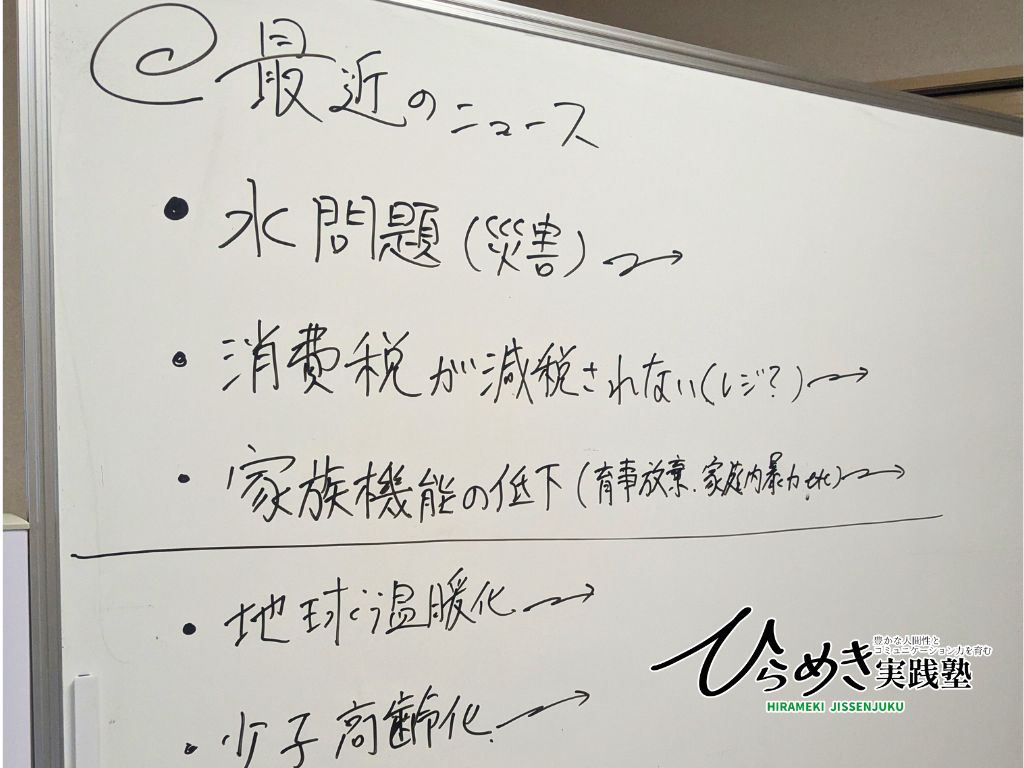 @最近のニュース
・水問題(災害)→
・消費税が減税されない(レジ?)→
・家族機能の低下(育事放棄、家庭内暴力etc)→
・地球温暖化→
・少子高齢化→
ひらめき実践塾
豊かな人間性と
コミュニケーション力を育む
HIRAMEKI JISSENJUKU